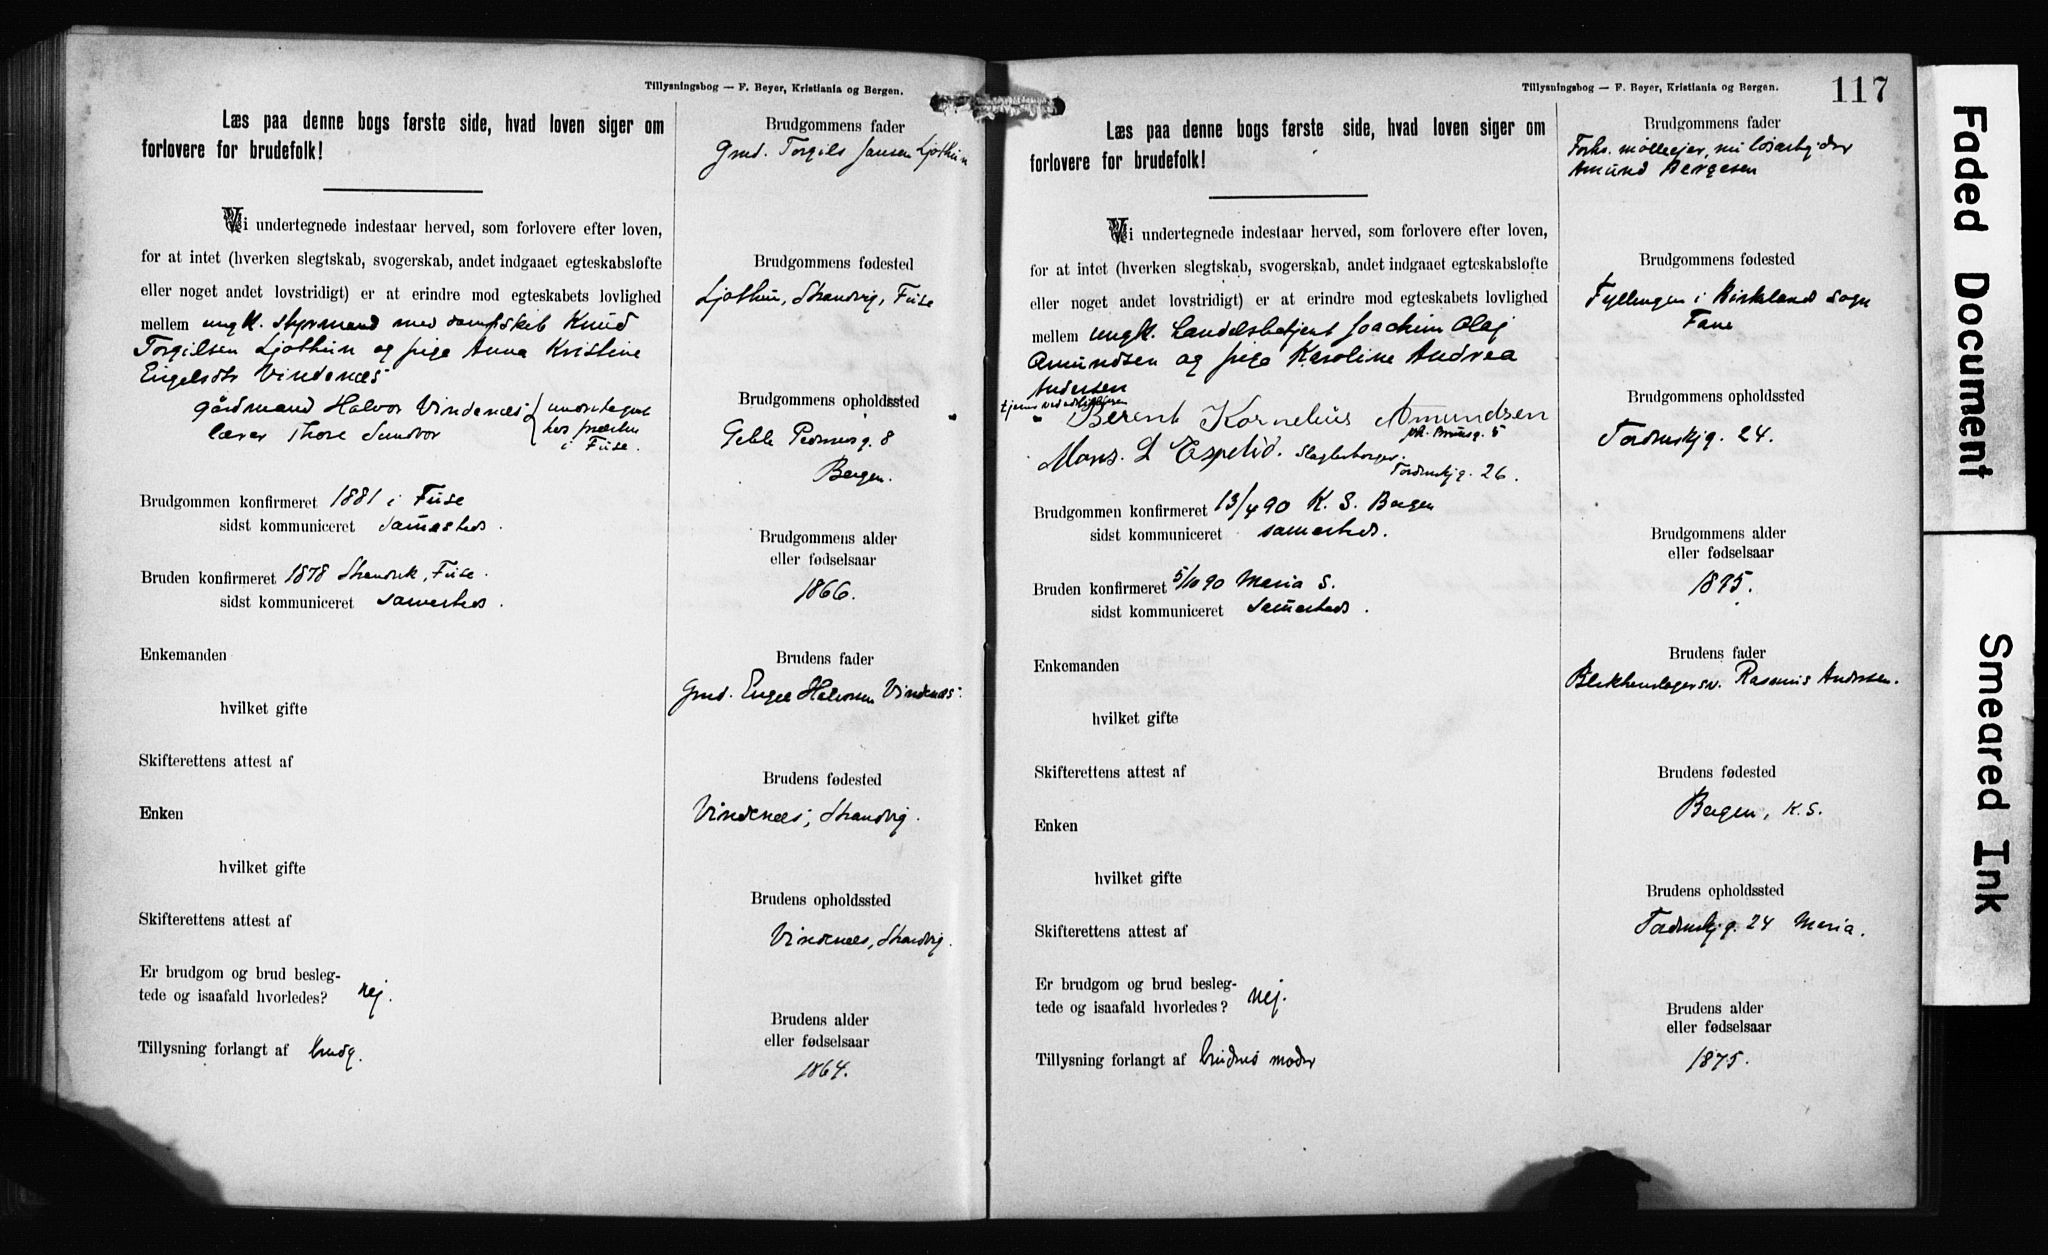 Tillysningsbog — F. Beyer, Kristiania og Bergen.
Læs paa denne bogs første side, hvad loven siger om
forlovere for brudefolk!
Vi undertegnede indestaar herved, som forlovere efter loven,
for at intet (hverken slegtskab, svogerskab, andet indgaaet egteskabsløfte
eller noget andet lovstridigt) er at erindre mod egteskabets lovlighed
mellem ungk. styrmand med dampskib Knud
Torgilsen Ljothun og pige Anna Kristine
Engelsdtr Vindenæs
gårdmand Halvor Vindenæs
lærer Thore Sundvor
undertegnet
hos præsten
i Fuse.
Brudgommen konfirmeret 1881 i Fuse
sidst kommuniceret samesteds.
Bruden konfirmeret 1878 Strandvik, Fuse.
sidst kommuniceret samesteds.
Enkemanden
hvilket gifte
Skifterettens attest af
Enken
hvilket gifte
Skifterettens attest af
Er brudgom og brud besleg-
tede og isaafald hvorledes? nej.
Tillysning forlangt af brudg.
Brudgommens fader
Gmd. Torgils Jansen Ljothun
Brudgommens fødested
Ljothun, Strandvig, Fuse
Brudgommens opholdssted
Geble Pedersg. 8
Bergen.
Brudgommens alder
eller fødselsaar
1866.
Brudens fader
Gmd. Engel Halvorsen Vindenæs
Brudens fødested
Vindenæs, Strandvig.
Brudens opholdssted
Vindenæs, Strandvig.
Brudens alder
eller fødselsaar
1864.
Tillysningsbog — F. Beyer, Kristiania og Bergen.
117
Læs paa denne bogs første side, hvad loven siger om
forlovere for brudefolk!
Vi undertegnede indestaar herved, som forlovere efter loven,
for at intet (hverken slegtskab, svogerskab, andet indgaaet egteskabsløfte
eller noget andet lovstridigt) er at erindre mod egteskabets lovlighed
mellem ungk. handelsbetjent Joachim Olaj
Amundsen og pige Karoline Andrea
Andersen
Berent Kornelius Amundsen
Mons. L Espelid. Slagterborger.
Tordenskjg. 26.
Brudgommen konfirmeret 13/4 90 K. S. Bergen
sidst kommuniceret samesteds.
Bruden konfirmeret 5/10 90 Maria S.
sidst kommuniceret samesteds.
Enkemanden
hvilket gifte
Skifterettens attest af
Enken
hvilket gifte
Skifterettens attest af
Er brudgom og brud besleg-
tede og isaafald hvorledes? nej.
Tillysning forlangt af brudens moder
Brudgommens fader
Forhv. mølleejer, nu løsarbejder
Amund Børgesen
Brudgommens fødested
Fyllingen i Birkeland sogn
Fane
Brudgommens opholdssted
Tordenskjg. 24.
Brudgommens alder
eller fødselsaar
1875.
Brudens fader
Blikkenslagersv. Rasmus Andersen.
Brudens fødested
Bergen, K. S.
Brudens opholdssted
Tordenskjg. 24 Maria.
Brudens alder
eller fødselsaar
1875.
Faded Document
Smeared Ink